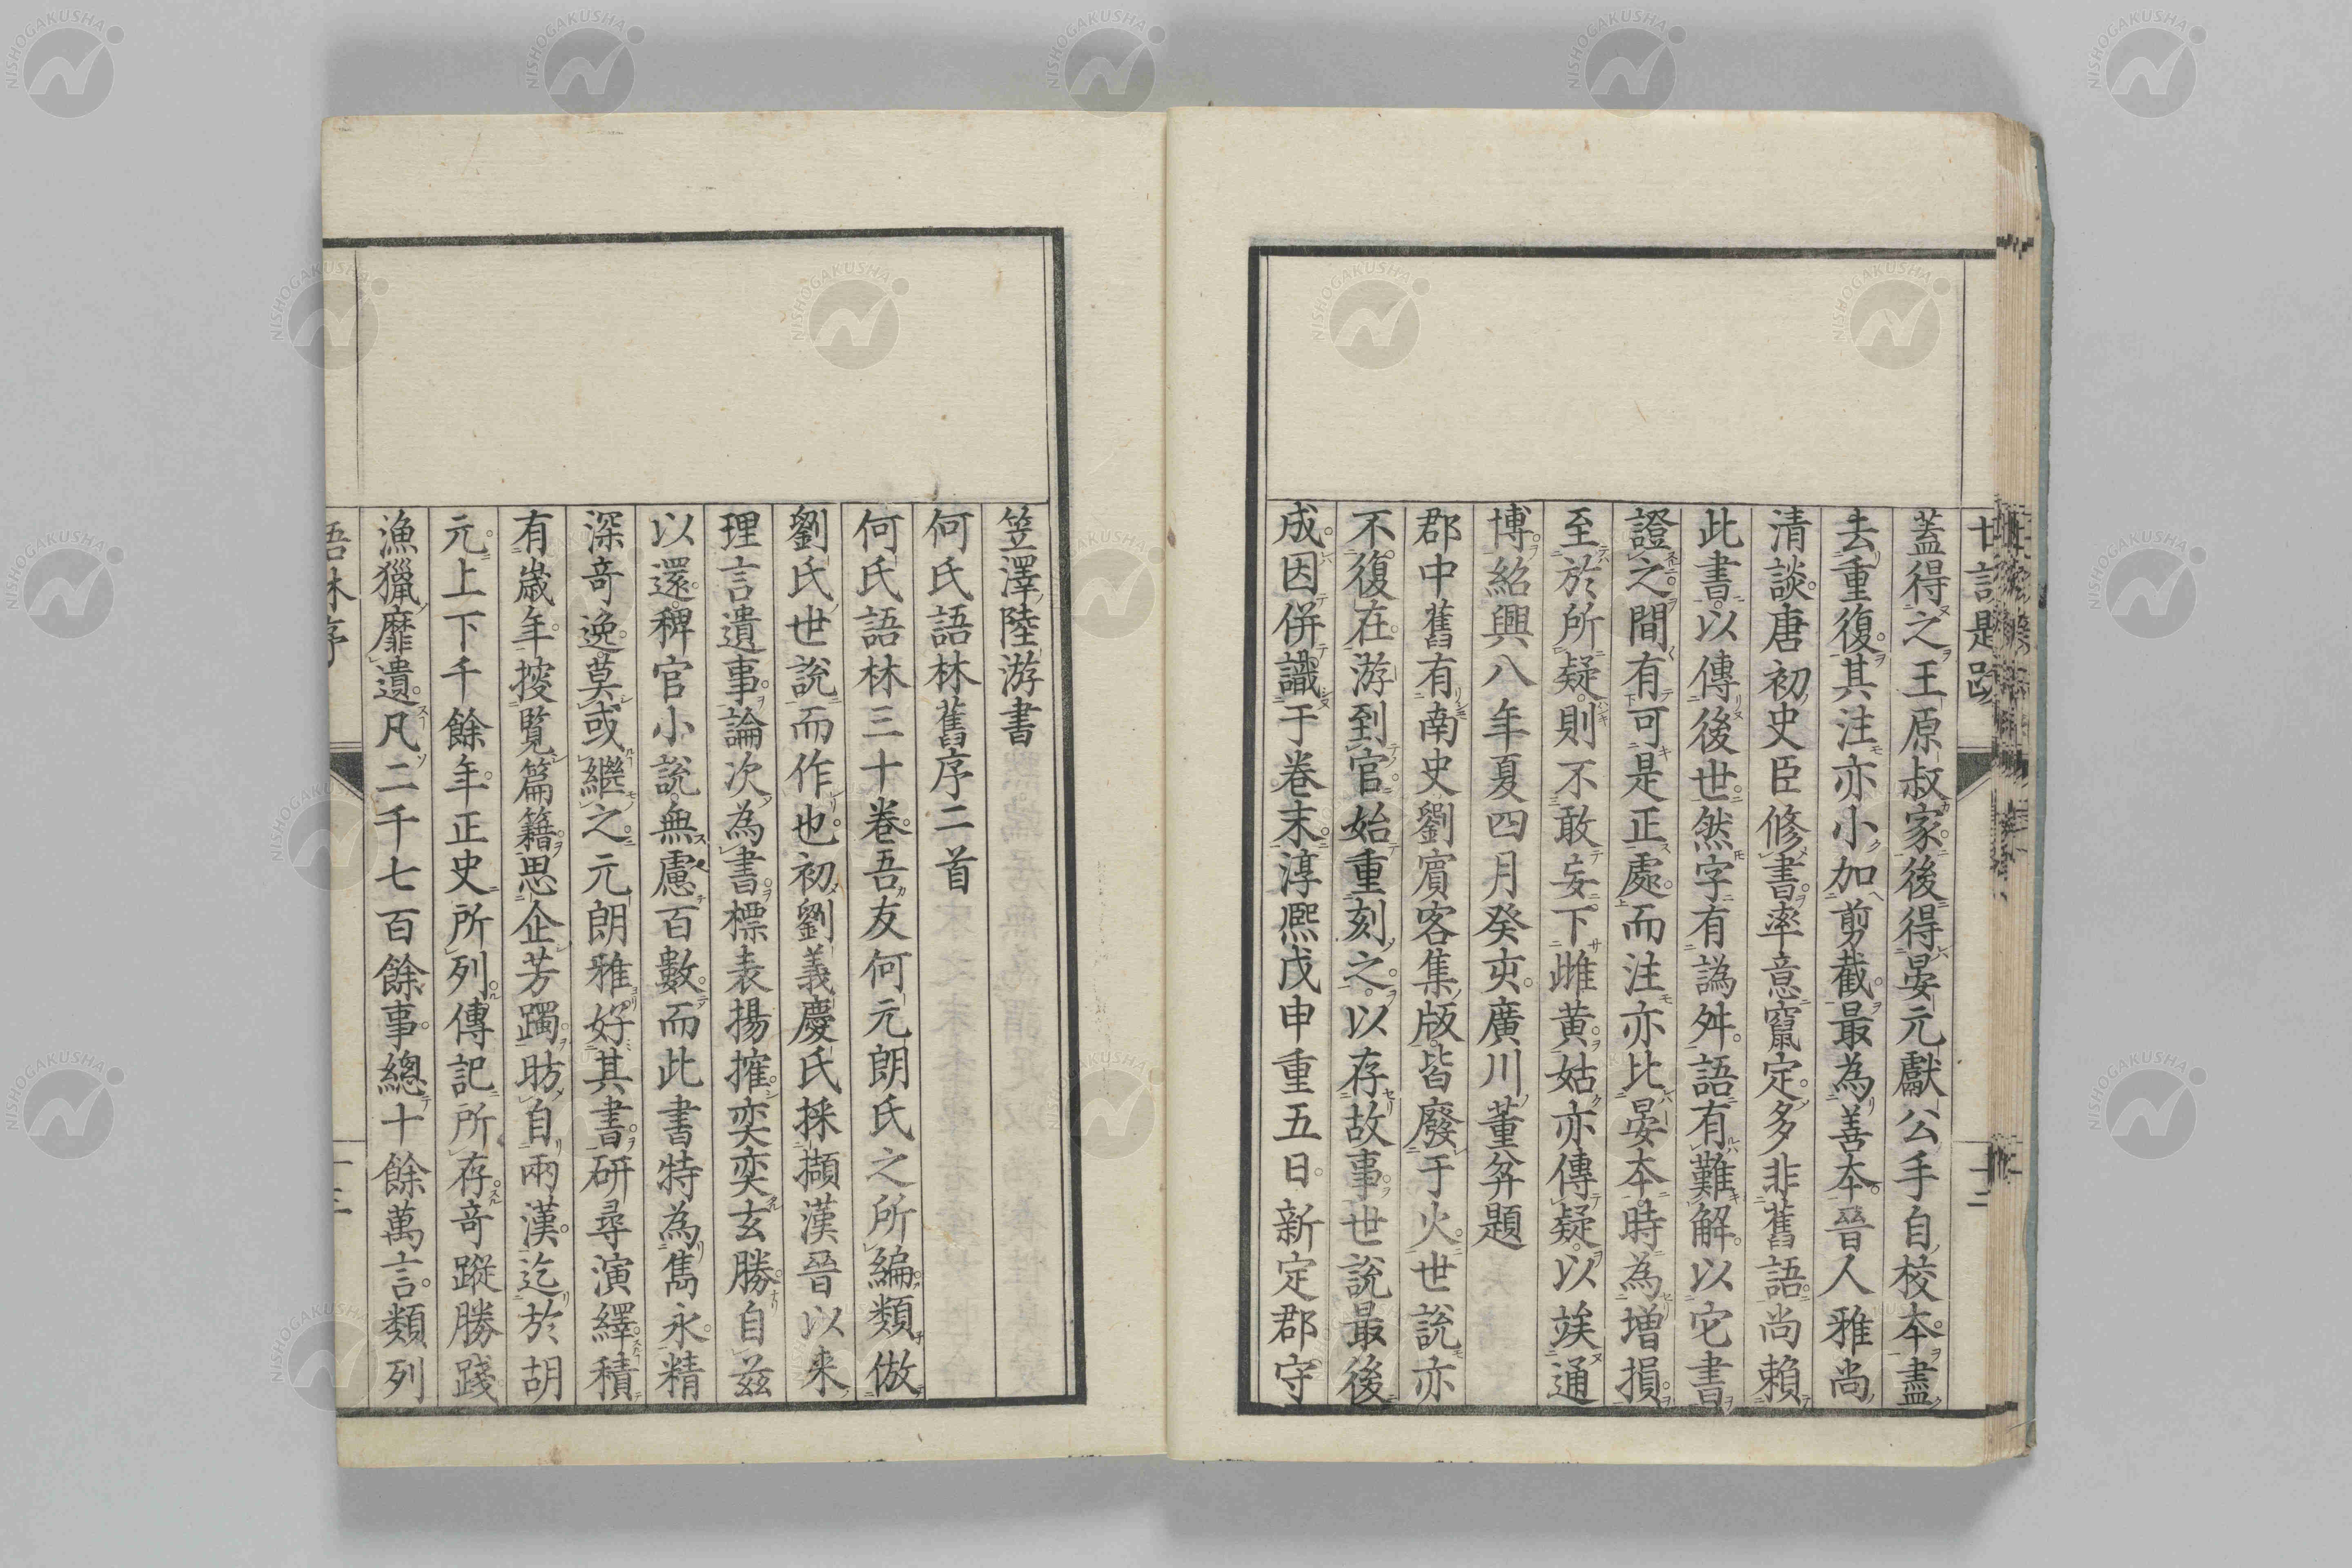 蓋得之王原叔家後得晏元獻公手自校本盡
去重復其注亦小加剪截最為善本晉人雅尚
清談唐初史臣修書率意竄定多非舊語尚賴
此書以傳後世然字有譌舛語有難解以它書
證之間有可是正處而注亦比晏本時為增損
至於所疑則不敢妄下雌黄姑亦傳疑以竢通
博紹興八年夏四月癸亥廣川董弅題
郡中舊有南史劉賓客集版皆廢于火世說亦
不復在游到官始重刻之以存故事世說最後
成因併識于卷末淳熙戊申重五日新定郡守
笠澤陸游書
何氏語林舊序二首
何氏語林三十卷吾友何元朗氏之所編類倣
劉氏世說而作也初劉義慶氏採擷漢晉以来
理言遺事論次為書標表揚搉奕奕玄勝自茲
以還稗官小說無慮百數而此書特為雋永精
深竒逸莫或繼之元朗雅好其書研尋演繹積
有歲年搜覽篇籍思企芳躅昉自兩漢迄於胡
元上下千餘年正史所列傳記所存竒蹤勝踐
漁獵靡遺凡二千七百餘事總十餘萬言類列
NISHOGAKUSHA